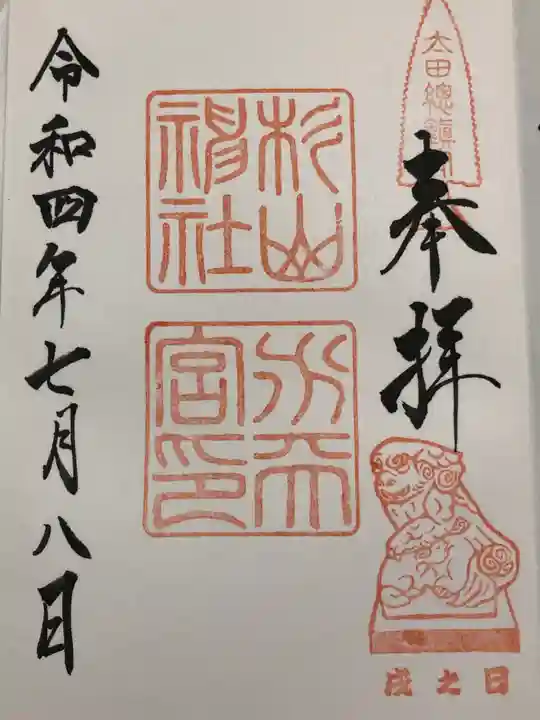 太田總鎮
奉拝
戌之日
杉山
神社
水天
宮印
令和四年七月八日